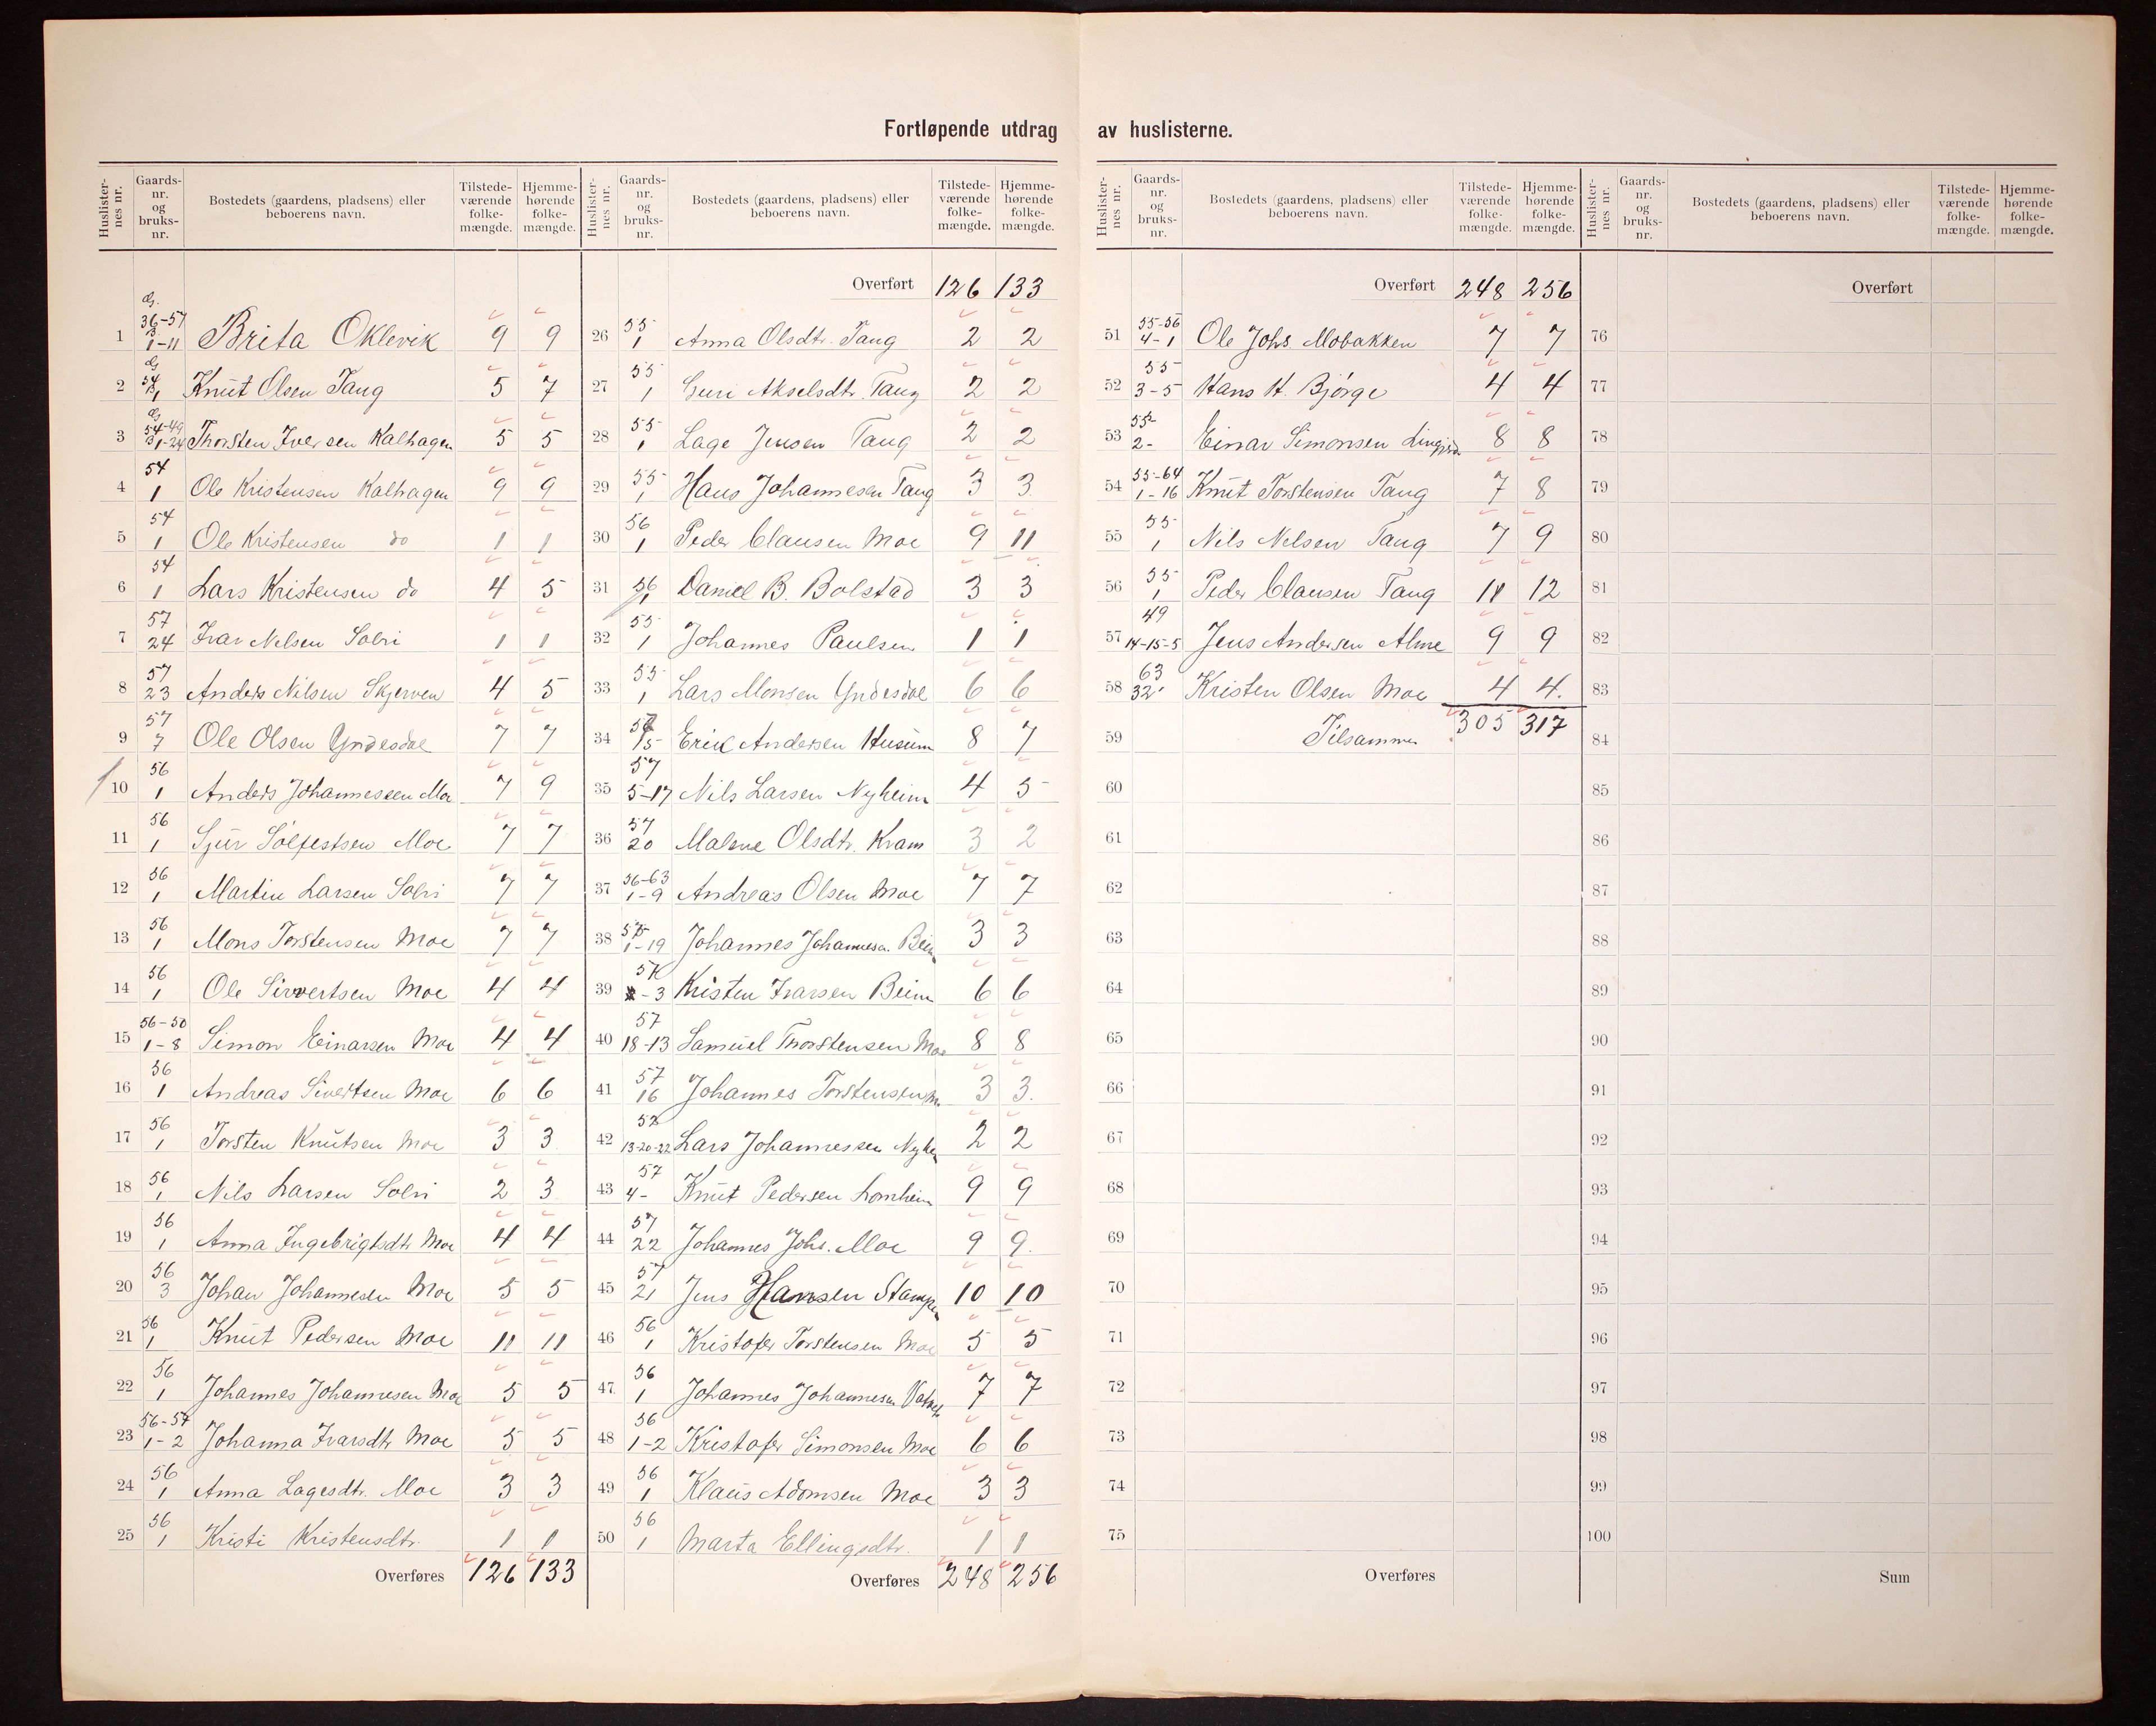 Fortløpende utdrag av huslisterne.
Huslisternes nr. | Gaards-nr. og bruks-nr. | Bostedets (gaardens, pladsens) eller beboerens navn. | Tilstedeværende folkemængde. | Hjemmehørende folkemængde.
1 | 1-11 | Brita Oklevik | 9 | 9
2 | 54 1 | Knut Olsen Tang | 5 | 7
3 | 54-49 1-24 | Thorsten Iversen Kalhagen | 5 | 5
4 | 54 1 | Ole Kristensen Kalhagen | 9 | 9
5 | 54 1 | Ole Kristensen do | 1 | 1
6 | 54 1 | Lars Kristensen do | 4 | 5
7 | 57 24 | Ivar Nelsen Solvi | 1 | 1
8 | 57 23 | Anders Nilsen Skjerven | 4 | 5
9 | 57 7 | Ole Olsen Yndesdal | 7 | 7
10 | 56 1 | Anders Johannessen Moe | 7 | 9
11 | 56 1 | Sjur Solfestsen Moe | 7 | 7
12 | 56 1 | Martin Larsen Solvi | 7 | 7
13 | 56 1 | Mons Torstensen Moe | 7 | 7
14 | 56 1 | Ole Sivvertsen Moe | 4 | 4
15 | 56-50 1-8 | Simon Einarsen Moe | 4 | 4
16 | 56 1 | Andreas Sivertsen Moe | 6 | 6
17 | 56 1 | Torsten Knutsen Moe | 3 | 3
18 | 56 1 | Nils Larsen Solvi | 2 | 3
19 | 56 1 | Anna Ingebrigtsdtr Moe | 4 | 4
20 | 56 3 | Johan Johannesen Moe | 5 | 5
21 | 56 1 | Knut Pedersen Moe | 11 | 11
22 | 56 1 | Johannes Johannesen Moe | 5 | 5
23 | 56-57 1-2 | Johanna Ivarsdtr Moe | 5 | 5
24 | 56 1 | Anna Lagesdtr. Moe | 3 | 3
25 | 56 1 | Kristi Kristensdtr. | 1 | 1
Overføres 126 133
Huslisternes nr. | Gaards-nr. og bruks-nr. | Bostedets (gaardens, pladsens) eller beboerens navn. | Tilstedeværende folkemængde. | Hjemmehørende folkemængde.
Overført 126 133
26 | 55 1 | Anna Olsdtr. Tang | 2 | 2
27 | 55 1 | Guri Akselsdtr. Tang | 2 | 2
28 | 55 1 | Lage Jensen Tang | 2 | 2
29 | 55 1 | Hans Johannesen Tang | 3 | 3
30 | 56 1 | Peder Clausen Moe | 9 | 11
31 | 56 1 | Daniel B. Bolstad | 3 | 3
32 | 55 1 | Johannes Paulsen | 1 | 1
33 | 55 1 | Lars Monsen Yndesdal | 6 | 6
34 | Erik Andersen Husum | 8 | 7
35 | 57 5-17 | Nils Larsen Nyheim | 4 | 5
36 | 57 20 | Malene Olsdtr. Kram | 3 | 2
37 | 56-63 1-9 | Andreas Olsen Moe | 7 | 7
38 | 1-19 | Johannes Johannesen Beim | 3 | 3
39 | -3 | Kristen Ivarsen Beim | 6 | 6
40 | 57 18-13 | Samuel Thorstensen Moe | 8 | 8
41 | 57 16 | Johannes Torstensen M. | 3 | 3.
42 | 13-20-22 | Lars Johannessen | 2 | 2
43 | 57 4- | Knut Pedersen Lomheim | 9 | 9
44 | 57 22 | Johannes Johs. Moe | 9 | 9.
45 | 57 21 | Jens Hansen Stampen | 10 | 10
46 | 56 1 | Kristofer Torstensen Moe | 5 | 5
47 | 56 1 | Johannes Johannesen | 7 | 7
48 | 56 1-2 | Kristofer Simonsen Moe | 6 | 6
49 | 56 1 | Klaus Adamsen Moe | 3 | 3
50 | 56 1 | Marta Ellingsdtr. | 1 | 1
Overføres 248 256
Huslisternes nr. | Gaards-nr. og bruks-nr. | Bostedets (gaardens, pladsens) eller beboerens navn. | Tilstedeværende folkemængde. | Hjemmehørende folkemængde.
Overført 248 256
51 | 55-56 4-1 | Ole Johs. Mobakken | 7 | 7
52 | 55 3-5 | Hans H. Bjørge | 4 | 4
53 | 55 2- | Einar Simonsen | 8 | 8
54 | 55-64 1-16 | Knut Torstensen Tang | 7 | 8
55 | 55 1 | Nils Nelsen Tang | 7 | 9
56 | 55 1 | Peder Clausen Tang | 11 | 12
57 | 49 14-15-5 | Jens Andersen Alme | 9 | 9
58 | 63 32 | Kristen Olsen Moe | 4 | 4.
59 | Tilsammen | 305 | 317
60
61
62
63
64
65
66
67
68
69
70
71
72
73
74
75
Overføres
Huslisternes nr. | Gaards-nr. og bruks-nr. | Bostedets (gaardens, pladsens) eller beboerens navn. | Tilstedeværende folkemængde. | Hjemmehørende folkemængde.
Overført
76
77
78
79
80
81
82
83
84
85
86
87
88
89
90
91
92
93
94
95
96
97
98
99
100
Sum